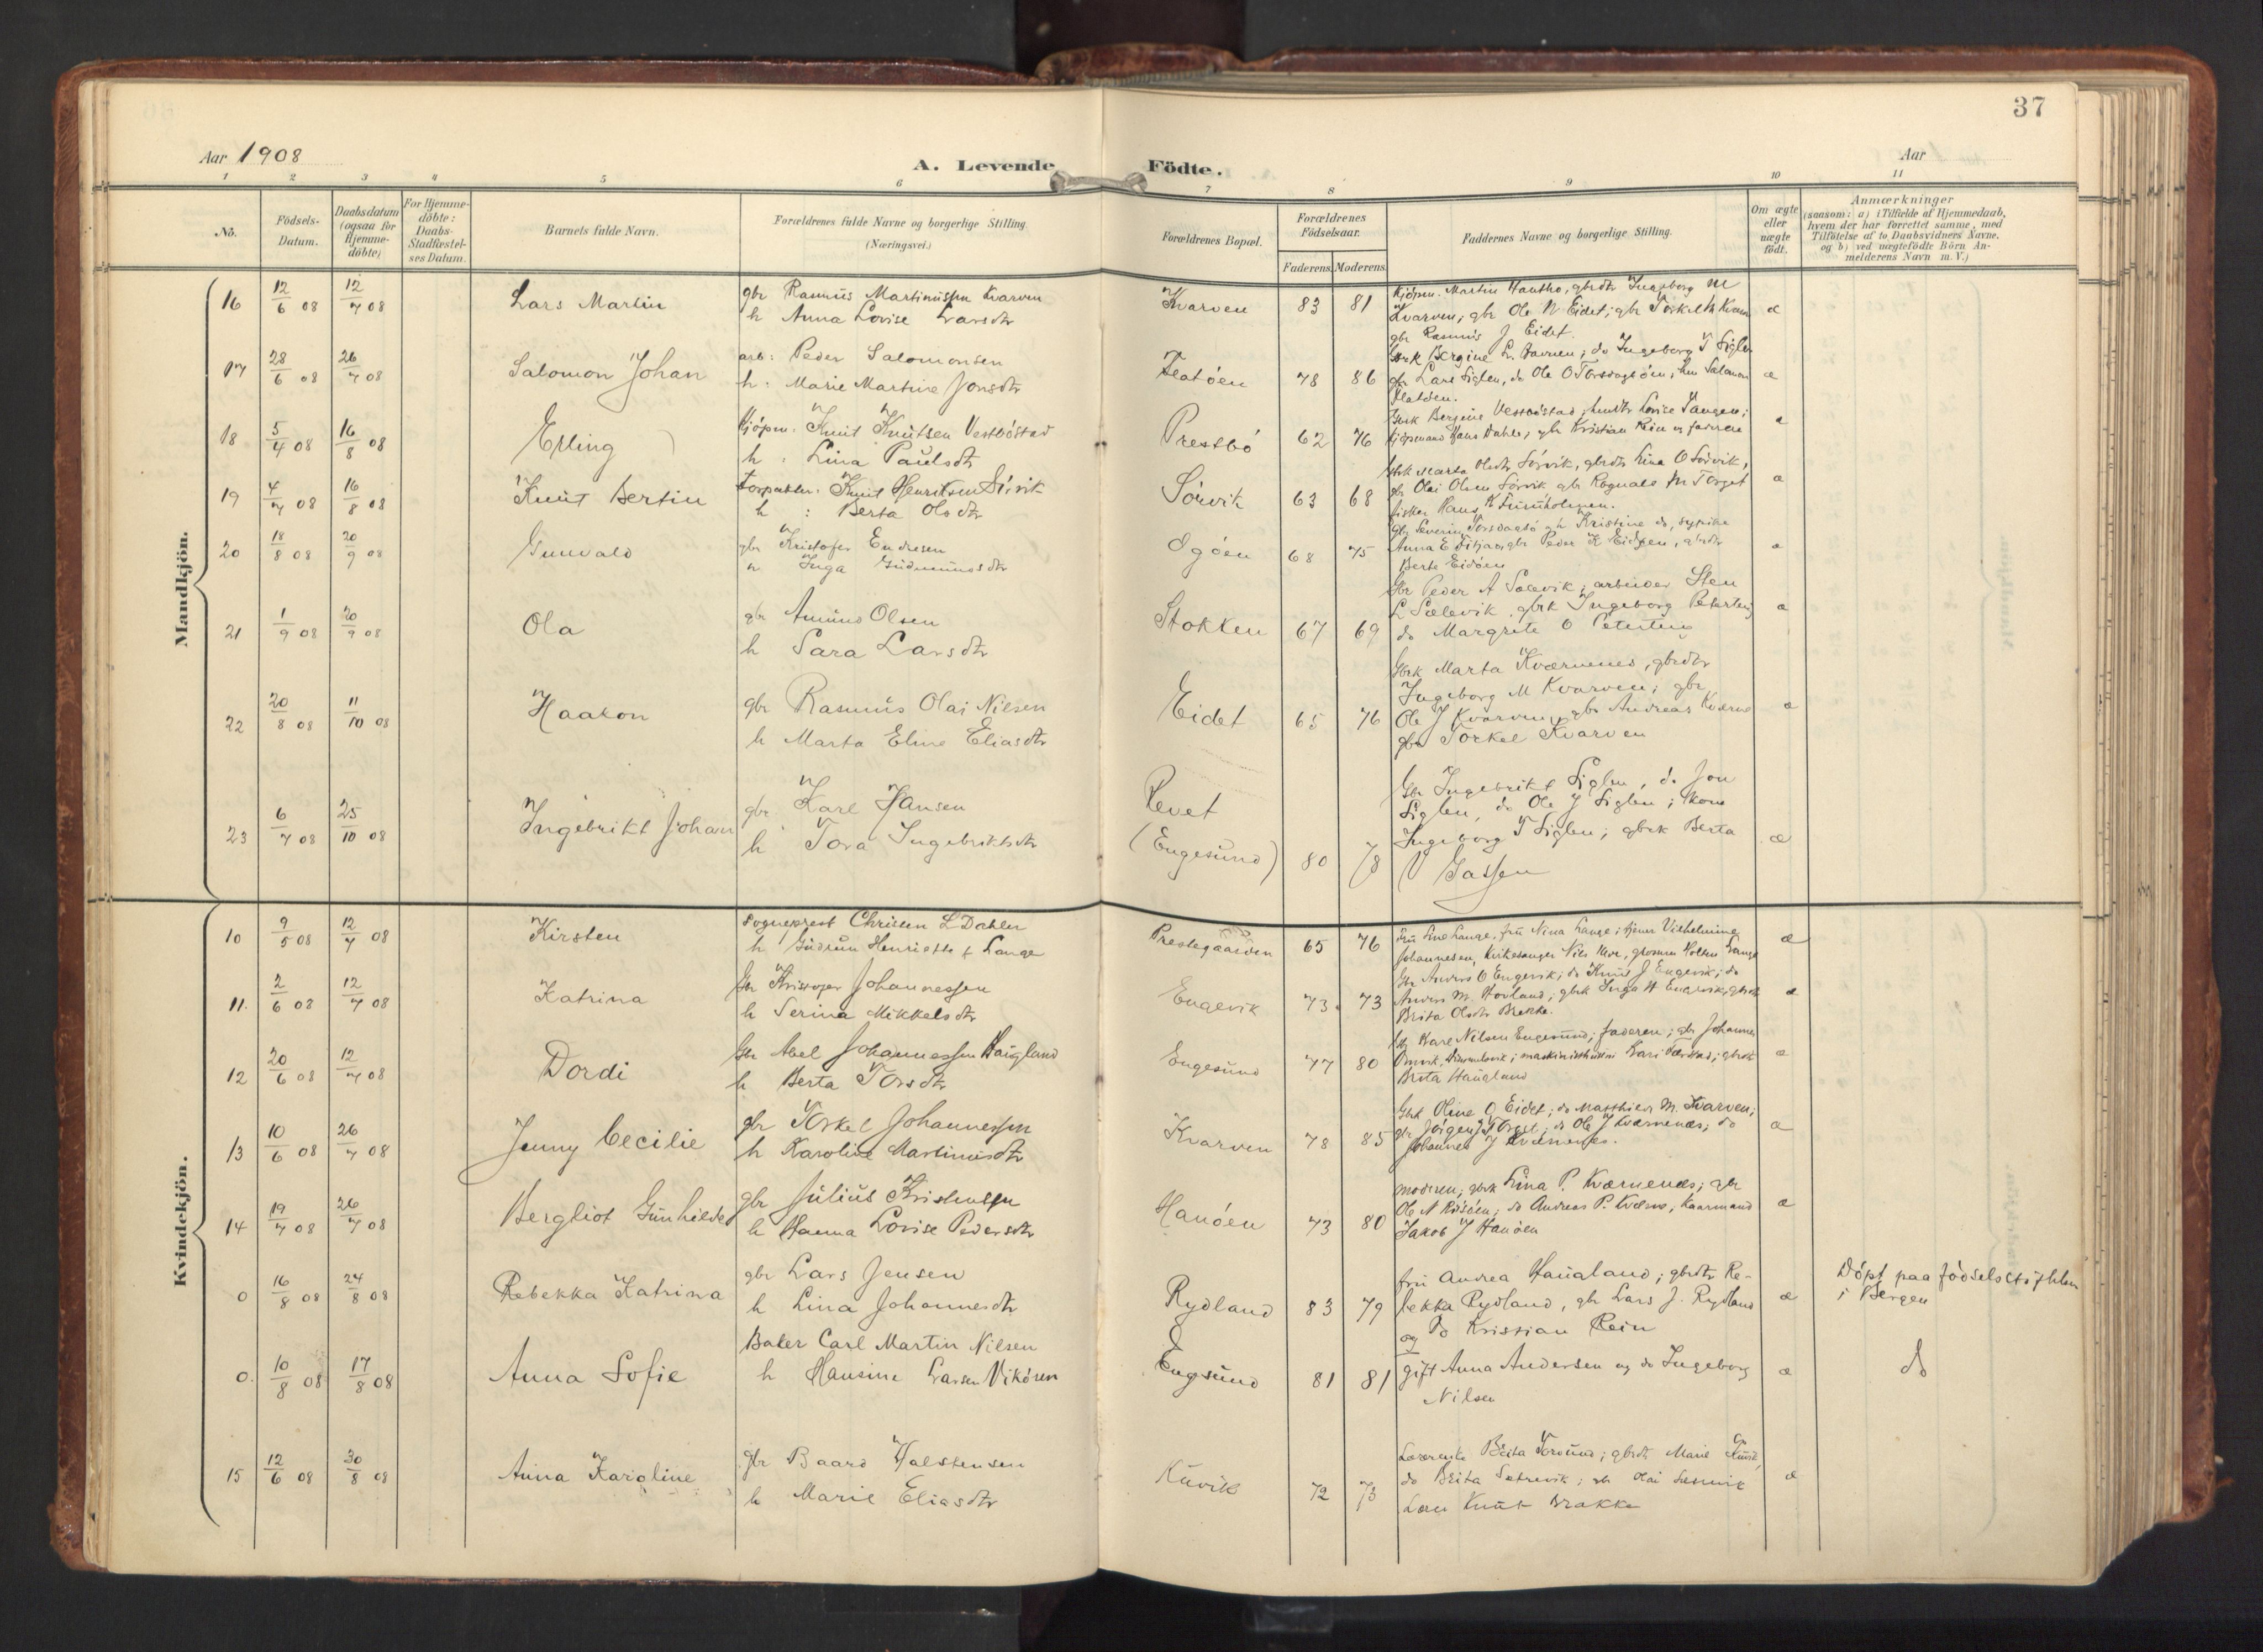 37
Aar 1908
A. Levende Födte.
Aar
1 2 3 4 5 6 7 8 9 10 11
No.
Födsels-Datum.
Daabsdatum (ogsaa for Hjemme-döbte)
For Hjemme-döbte: Daabs-Stadfæstel-ses Datum.
Barnets fulde Navn.
Forældrenes fulde Navne og borgerlige Stilling (Næringsvei.)
Forældrenes Bopæl.
Forældrenes Födselsaar.
Faderens Moderens
Faddernes Navne og borgerlige Stilling.
Om ægte eller uægte födt.
Anmærkninger
(saasom: a) i Tilfælde af Hjemmedaab, hvem der har forrettet samme, med Tilföielse af to Daabsvidners Navne, og b) ved uægtefödte Börn An-melderens Navn m. V.)
Mandkjön.
16 12/6 08 12/7 08 Lars Martin gbr Rasmus Martinussen Kvarven
h Anna Lovise Larsdtr
Kvarven 83 81 Kjöpm. Martin Hautho, gbrdtr Ingeborg M
Kvarven; gbr Ole N Eidet; gbr Torkel M Kvarv æ
gbr Rasmus J Eidet.
17 28/6 08 26/7 08 Salomon Johan arb: Peder Salomonsen
h: Marie Martine Jonsdtr
Flatöen 78 86 Gbrk Bergine L. ; do Ingeborg T Siglen
gbr Lars Siglen, do Ole O Torsdagsöen; Salomon æ
Flatöen.
18 5/4 08 16/8 08 Erling Kjöpm. Knut Knutsen Vestböstad
h: Lina Paulsdtr
Prestbö 62 76 Gbrk Bergine Vestböstad, Lovise Vangen; æ
Kjöpmand Hans Dahle; gbr Kristian Rein og faderen
19 4/7 08 16/8 08 Knut Bertin Knut Henriksen Sörvik
h: Berta Olsdtr
Sörvik 63 68 gbrk Marta Olsdtr Sörvik, gbrdtr Lina O Sörvik,
gbr Olai Olsen Sörvik gbr Rognald M Torget æ
fisker Hans K Furuholmen.
20 18/8 08 20/9 08 Gunvald gbr Kristofer Endresen
h Inga Gudmundsdtr
Ögöen 68 75 gbr Severin Torsdagsö gbr Kristine do, sypike
Anna E gbr Peder K Eidöen, gbrdtr æ
Berte Eidöen
21 1/9 08 20/9 08 Ola gbr Amund Olsen
h Sara Larsdtr
Stokken 67 69 Gbr Peder A Sælevik; arbeider Sten
L Sælevik, gbrk Ingeborg Petarteig æ
do Margrete O Petarteig
22 20/8 08 11/10 08 Haakon gbr Rasmus Olai Nilsen
h Marta Eline Eliasdtr
Eidet 65 76 Gbrk Marta Kværnenes, gbrdtr
Ingeborg M Kvarven; gbr
Ole J Kvarven, gbr Andreas Kværne æ
gbr Torkel Kvarven
23 6/7 08 25/10 08 Ingebrikt Johan gbr Karl Hansen
h Tora Ingebriktsdtr
Revet
(Engesund) 80 78 Gbr Ingebrikt Siglen, do Jon
Siglen, do Ole J Siglen; kone
Ingeborg T Siglen; gbrk Berta æ
V Jassen
Kvindekjön.
10 9/5 08 12/7 08 Kirsten Sogneprest Christen L Dahler
h Gudrun Henriette f Lange
Prestegaarden 65 76 Fru Line Lange, fru Nina Lange; Vilhelmine æ
Johannesen, Kirkesanger Nils Lange
11. 2/6 08 12/7 08 Katrina Gbr Kristofer Johannessen
h Serina Mikkelsdtr
Engevik 73 73 Gbr Anders O Engevik; do Knut J Engevik; do
Anders M. Hovland; gbrk Inga H Engevik, gbrdtr æ
Brita Olsdtr Brekke.
12 20/6 08 12/7 08 Dordi Gbr Abel Johannessen Haugland
h Berta Torsdtr
Engesund 77 80 Gbr Karl Nilsen Engesund; faderen; gbr Johannes
Kari gbrdtr æ
Brita Haugland
13 10/6 08 26/7 08 Jenny Cecilie gbr Torkel Johannessen
h Karoline Martinusdtr
Kvarven 78 85 Gbrk Oline O Eidet; do Mathilde M. Kvarven;
gbr Jörgen Torget; do Ole J Kværnenæs; do æ
Johannes J Kværnenes.
14 19/7 08 26/7 08 Bergliot Gunhilde gbr Julius Kristensen
h Hanna Lovise Pedersdtr
Hanöen 73 80 moderen; gbrk Lina P. Kværnenæs; gbr
Ole N do Andreas P. Kværne, Kaarmand æ
Jakob J Hanöen
0 16/8 08 24/8 08 Rebekka Katrina gbr Lars Jensen
h Lina Johannesdtr
Rydland 83 79 fru Andrea Haugland; gbrdtr Re-
bekka Rydland, gbr Lars J. Rydland æ
og do Kristian Rein
Döpt paa födselsstiftelsen
i Bergen
0. 10/8 08 17/8 08 Anna Sofie Baker Carl Martin Nilsen
h Hansine Larsen Vikören
Engsund 81 81 gift Anna Andersen og do Ingeborg æ
Nilsen
do
15 12/6 08 30/8 08 Anna Karoline gbr Baard Halstensen
h Marie Eliasdtr
Kuvik 72 73 Lærerenke Brita gbrdtr Marie Kuvik,
do Brita Sætrevik; gbr Olai æ
Lærer Knut Brakke